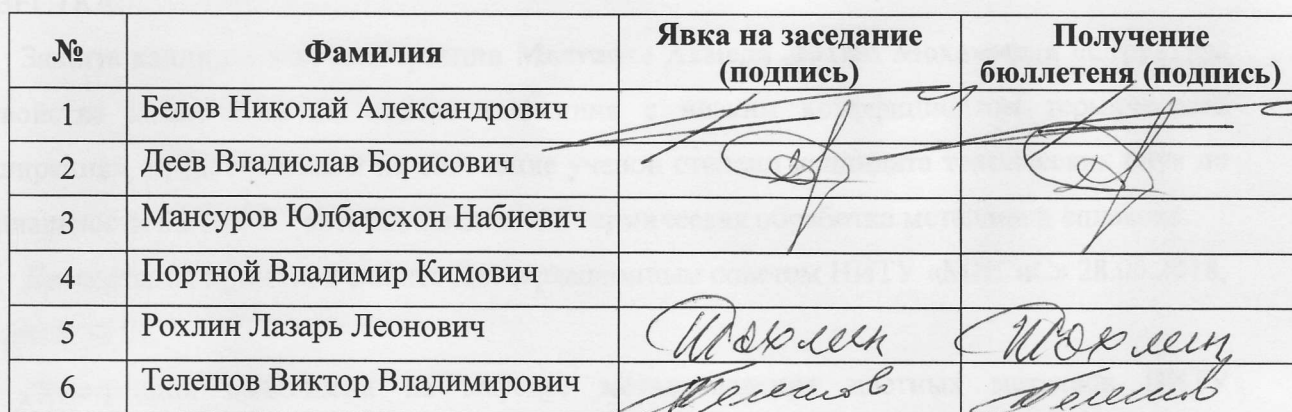 № Фамилия Явка на заседание (подпись) Получение бюллетеня (подпись)
1 Белов Николай Александрович
2 Деев Владислав Борисович
3 Мансуров Юлбарсхон Набиевич
4 Портной Владимир Кимович
5 Рохлин Лазарь Леонович Рохлин Рохлин
6 Телешов Виктор Владимирович Телешов Телешов